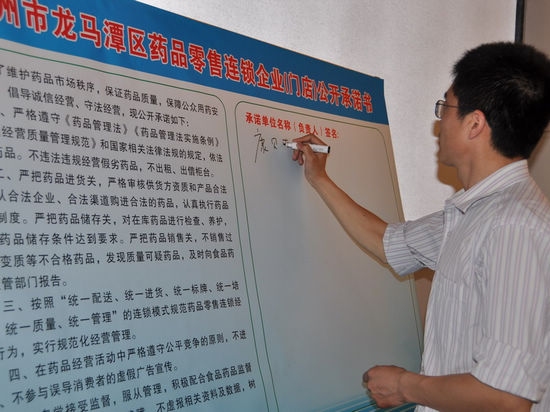 州市龙马潭区药品零售连锁企业(门店)公开承诺书
了维护药品市场秩序，保证药品质量，保障公众用药安
倡导诚信经营、守法经营，现公开承诺如下：
、严格遵守《药品管理法》《药品管理法实施条例》
经营质量管理规范》和国家相关法律法规的规定，依法
药品。不违法违规经营假劣药品，不出租、出借柜台。
二、严把药品进货关，严格审核供货方资质和产品合法
从合法企业、合法渠道购进合法的药品，认真执行药品
制度。严把药品储存关，对在库药品进行检查、养护，
药品储存条件达到要求。严把药品销售关，不销售过
变质等不合格药品，发现质量可疑药品，及时向食品药
监管部门报告。
三、按照“统一配送、统一进货、统一标牌、统一培
统一质量、统一管理”的连锁模式规范药品零售连锁经
行为，实行规范化经营管理。
四、在药品经营活动中严格遵守公平竞争的原则，不进
不参与误导消费者的虚假广告宣传。
自觉接受监督，服从管理，积极配合食品药品监督
不虚报相关资料及数据，树
承诺单位名称（负责人）签名：
康